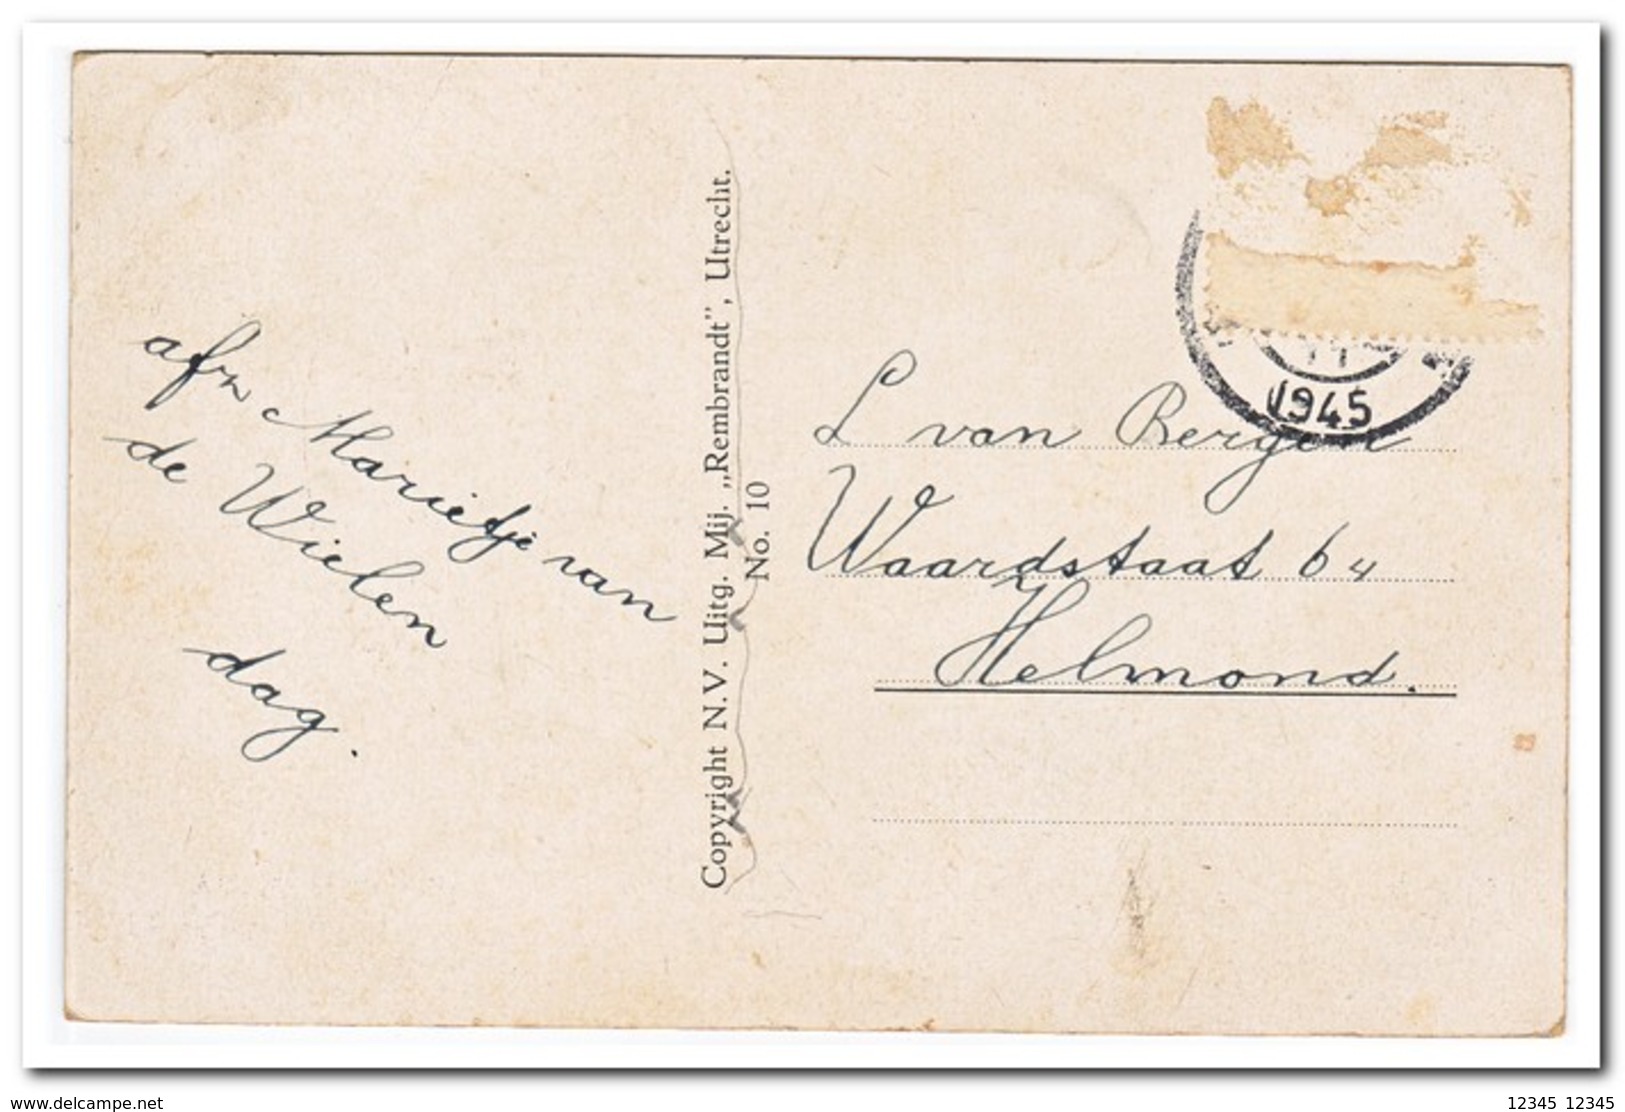 afz Marietje van
de Wielen
dag.
Copyright N.V. Uitg. Mij. „Rembrandt”, Utrecht.
No. 10
1945
L van Bergen
Waardstaat 64
Helmond.
www.delcampe.net
12345 12345